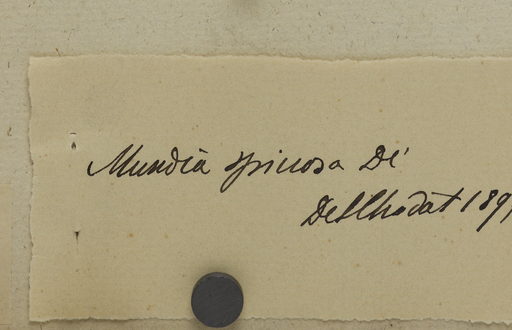 Mundia spinosa DC
Det Chodat 189